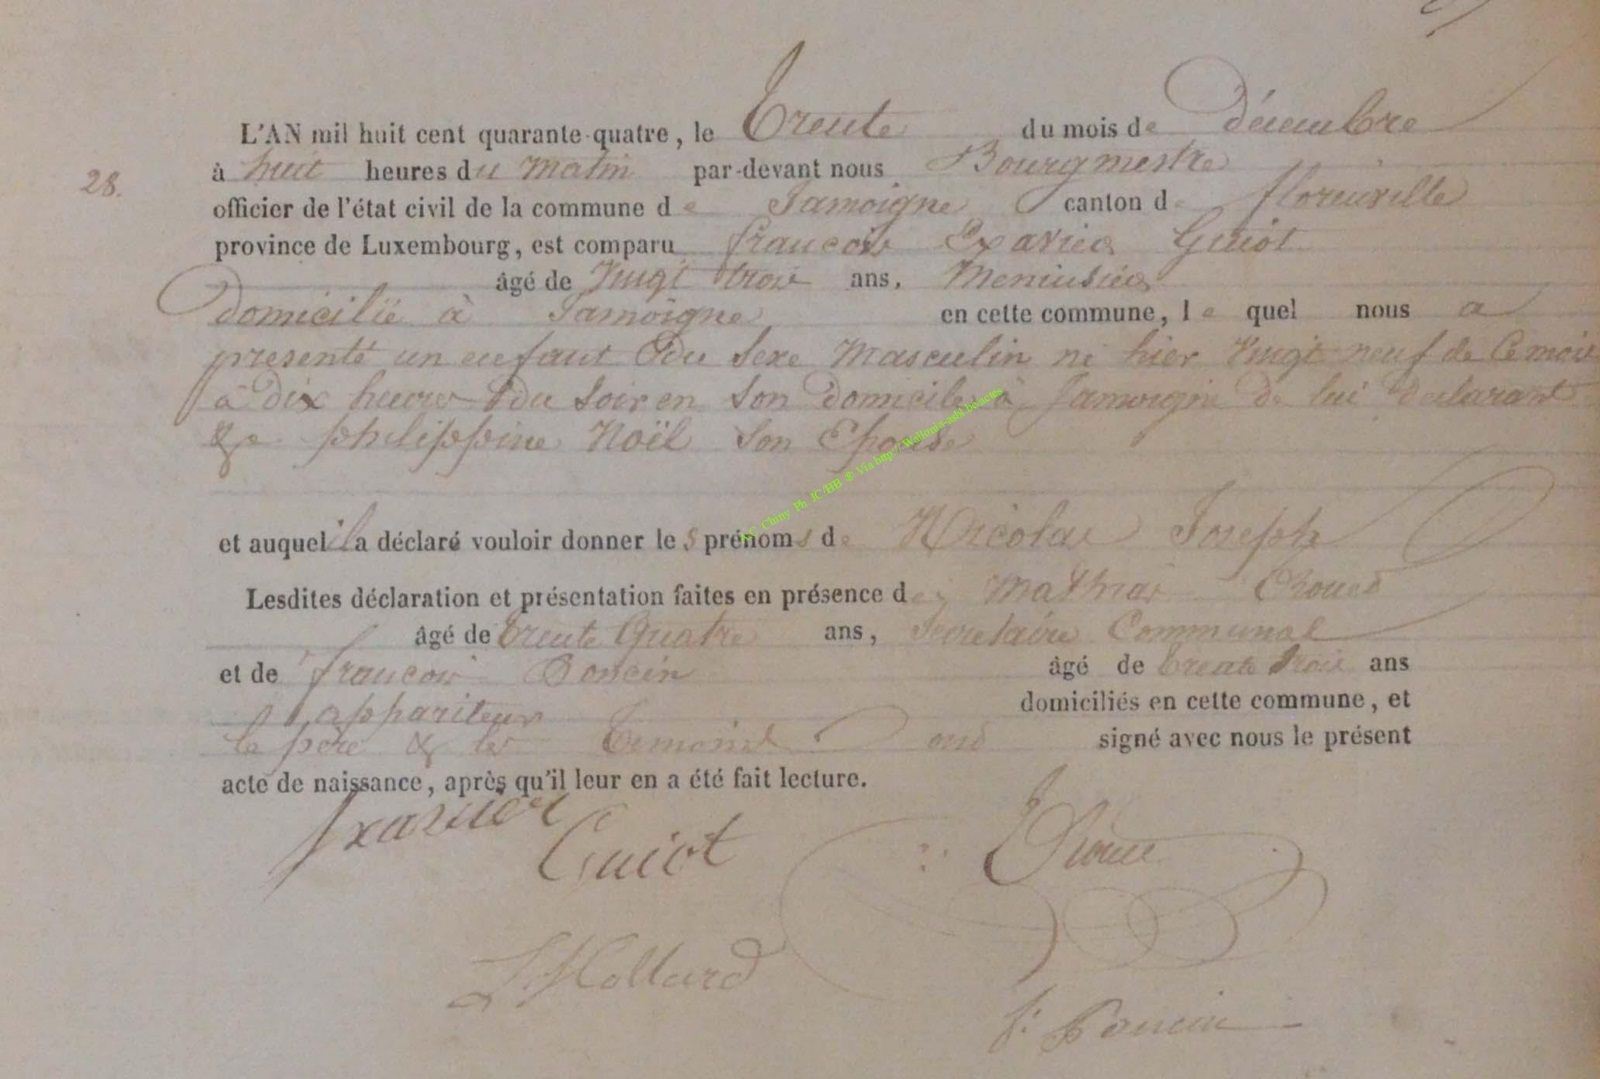 L'AN mil huit cent quarante-quatre, le Trente du mois de décembre
28.
à huit heures du Matin par-devant nous Bourgmestre
officier de l'état civil de la commune de Jamoigne canton de florenville
province de Luxembourg, est comparu francois Exavier Guiot
âgé de Vingt trois ans, Menuisier
domicilié à Jamoigne en cette commune, le quel nous a
presenté un enfant du Sexe Masculin né hier Vingt neuf de Ce mois
à dix heures du Soir en Son domicile à Jamoigne de lui declarant
& de philippine Noël Son Epouse
et auquel il a déclaré vouloir donner les prénoms de Nicolas Joseph
Lesdites déclaration et présentation faites en présence de Mathias
âgé de trente Quatre ans, Secretaire Communal
et de francois Poncin âgé de trente trois ans
appariteur domiciliés en cette commune, et
le père & les Temoins ont signé avec nous le présent
acte de naissance, après qu'il leur en a été fait lecture.
Exavier
Guiot
Hollard
f: Poncin